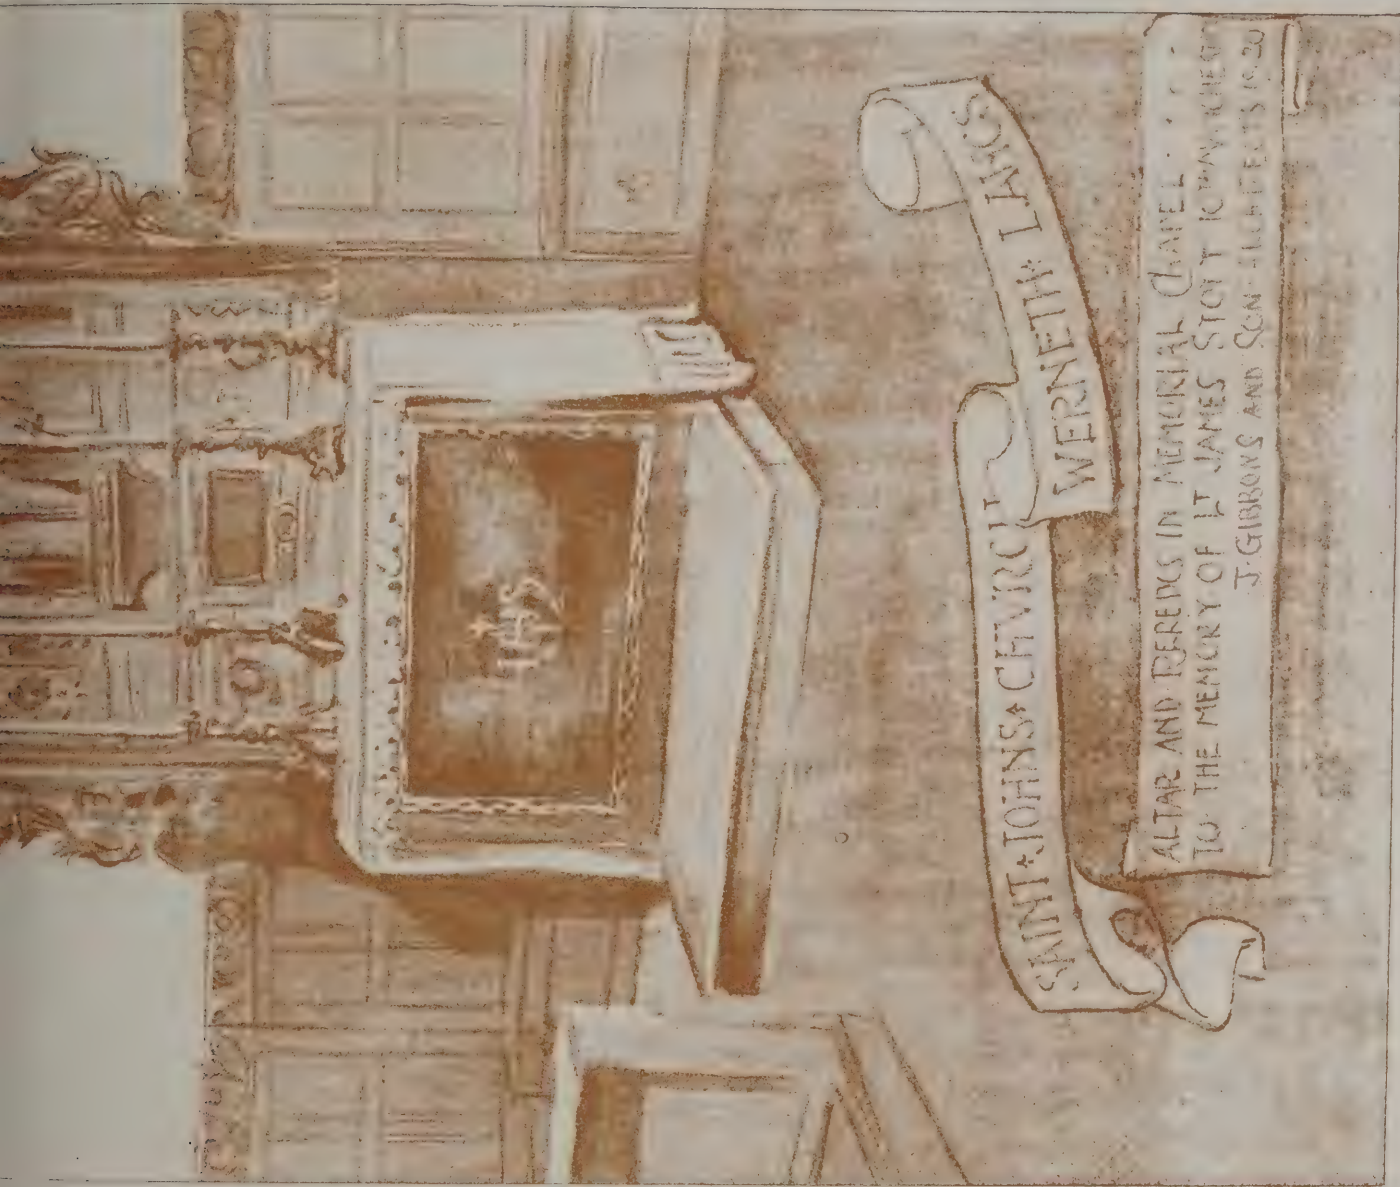 IHS
SAINT JOHNS CHVRCH
WERNETH LANCS
ALTAR AND REREDOS IN MEMORIAL CHAPEL
TO THE MEMORY OF LT JAMES STOTT
J. GIBBONS AND SON